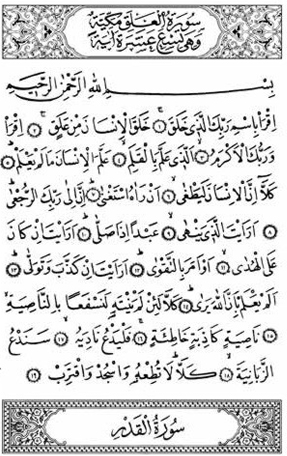 سُورَةُ الْعَلَقِ مَكِّيَّةٌ
وَهِيَ تِسْعَ عَشَرَةَ آيَةً
بِسْمِ اللهِ الرَّحْمٰنِ الرَّحِيْمِ
اِقْرَأْ بِاسْمِ رَبِّكَ الَّذِىْ خَلَقَ ۝١ خَلَقَ الْاِنْسَانَ مِنْ عَلَقٍ ۝٢ اِقْرَأْ
وَرَبُّكَ الْاَكْرَمُ ۝٣ الَّذِىْ عَلَّمَ بِالْقَلَمِ ۝٤ عَلَّمَ الْاِنْسَانَ مَا لَمْ يَعْلَمْ ۝٥
كَلَّآ اِنَّ الْاِنْسَانَ لَيَطْغٰى ۝٦ اَنْ رَّاٰهُ اسْتَغْنٰى ۝٧ اِنَّ اِلٰى رَبِّكَ الرُّجْعٰى
۝٨ اَرَءَيْتَ الَّذِىْ يَنْهٰى ۝٩ عَبْدًا اِذَا صَلّٰى ۝١٠ اَرَءَيْتَ اِنْ كَانَ
عَلَى الْهُدٰى ۝١١ اَوْ اَمَرَ بِالتَّقْوٰى ۝١٢ اَرَءَيْتَ اِنْ كَذَّبَ وَتَوَلّٰى ۝١٣
اَلَمْ يَعْلَمْ بِاَنَّ اللهَ يَرٰى ۝١٤ كَلَّا لَئِنْ لَّمْ يَنْتَهِ لَنَسْفَعًا بِالنَّاصِيَةِ
۝١٥ نَاصِيَةٍ كَاذِبَةٍ خَاطِئَةٍ ۝١٦ فَلْيَدْعُ نَادِيَهُ ۝١٧ سَنَدْعُ
الزَّبَانِيَةَ ۝١٨ كَلَّا لَا تُطِعْهُ وَاسْجُدْ وَاقْتَرِبْ ۝١٩
سُورَةُ الْقَدْرِ